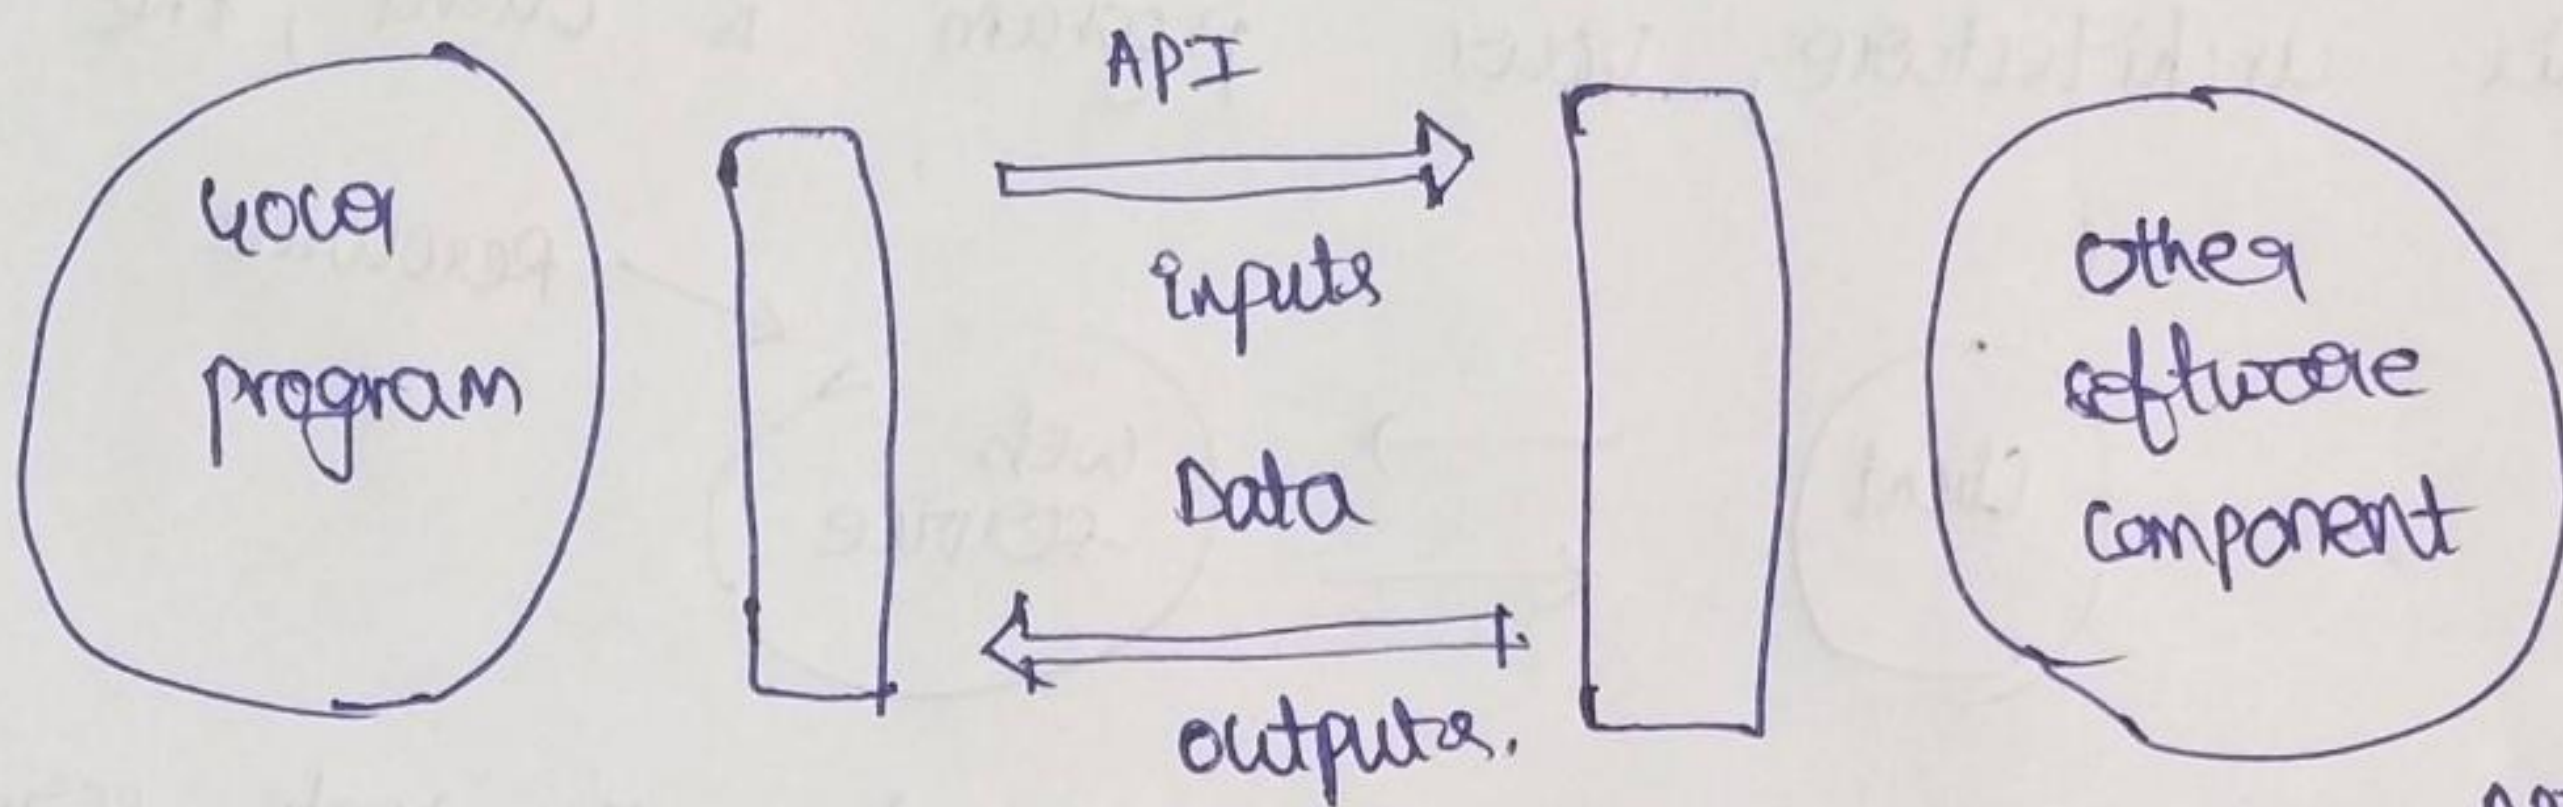 Your
program
API
inputs
Data
outputs.
Other
software
component